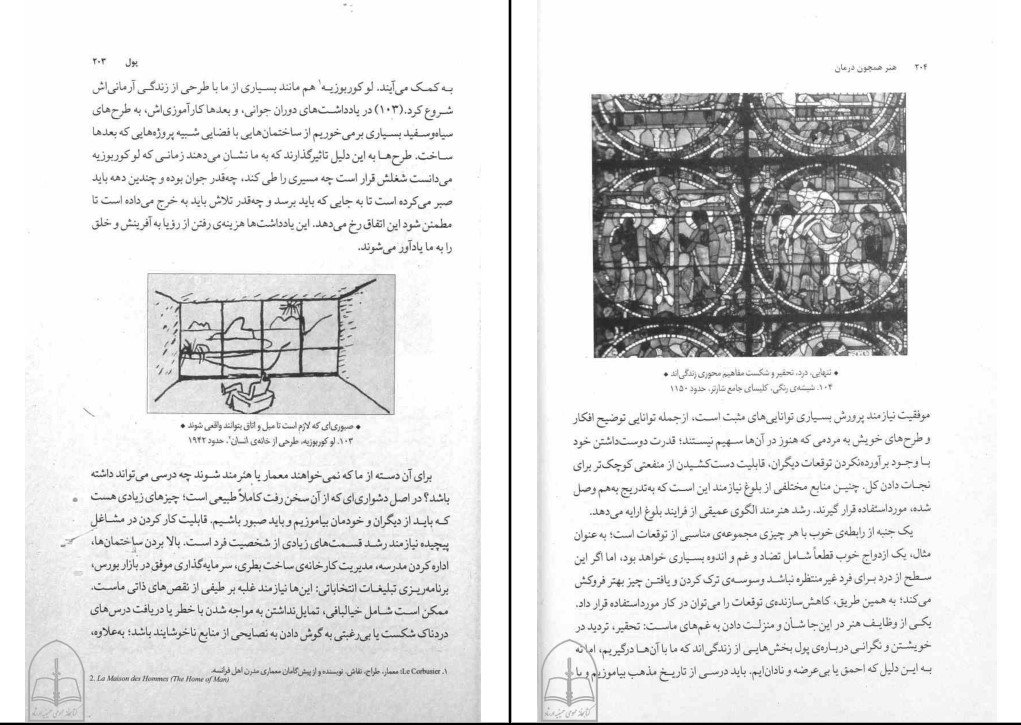 پول ۲۰۳
به کمک می‌آیند. لو کوربوزیه۱ هم مانند بسیاری از ما با طرحی از زندگی آرمانی‌اش
شروع کرد.(۱۰۳) در یادداشت‌های دوران جوانی، و بعدها کارآموزی‌اش، به طرح‌های
سیاه‌وسفید بسیاری برمی‌خوریم از ساختمان‌هایی با فضایی شبیه پروژه‌هایی که بعدها
ساخت. طرح‌ها به این دلیل تاثیرگذارند که به ما نشان می‌دهند زمانی که لو کوربوزیه
می‌دانست شغلش قرار است چه مسیری را طی کند، چه‌قدر جوان بوده و چندین دهه باید
صبر می‌کرده است تا به جایی که باید برسد و چه‌قدر تلاش باید به خرج می‌داده است تا
مطمئن شود این اتفاق رخ می‌دهد. این یادداشت‌ها هزینه‌ی رفتن از رؤیا به آفرینش و خلق
را به ما یادآور می‌شوند.
◆ صبوری‌ای که لازم است تا مبل و اتاق بتوانند واقعی شوند ◆
۱۰۳. لو کوربوزیه، طرحی از خانه‌ی انسان۲، حدود ۱۹۴۲
برای آن دسته از ما که نمی‌خواهند معمار یا هنرمند شوند چه درسی می‌تواند داشته
باشد؟ در اصل دشواری‌ای که از آن سخن رفت کاملاً طبیعی است؛ چیزهای زیادی هست
که باید از دیگران و خودمان بیاموزیم و باید صبور باشیم. قابلیت کار کردن در مشاغل
پیچیده نیازمند رشد قسمت‌های زیادی از شخصیت فرد است. بالا بردن ساختمان‌ها،
اداره کردن مدرسه، مدیریت کارخانه‌ی ساخت بطری، سرمایه‌گذاری موفق در بازار بورس،
برنامه‌ریزی تبلیغات انتخاباتی: این‌ها نیازمند غلبه بر طیفی از نقص‌های ذاتی ماست.
ممکن است شامل خیالبافی، تمایل‌نداشتن به مواجه شدن با خطر یا دریافت درس‌های
دردناک شکست یا بی‌رغبتی به گوش دادن به نصایحی از منابع ناخوشایند باشد؛ به‌علاوه،
۱. Le Corbusier: معمار، طراح، نقاش، نویسنده و از پیش‌گامان معماری مدرن اهل فرانسه.
2. La Maison des Hommes (The Home of Man)
۲۰۴ هنر همچون درمان
◆ تنهایی، درد، تحقیر و شکست مفاهیم محوری زندگی‌اند ◆
۱۰۴. شیشه‌ی رنگی، کلیسای جامع شارتر، حدود ۱۱۵۰
موفقیت نیازمند پرورش بسیاری توانایی‌های مثبت است، ازجمله توانایی توضیح افکار
و طرح‌های خویش به مردمی که هنوز در آن‌ها سهیم نیستند؛ قدرت دوست‌داشتن خود
با وجود برآورده‌نکردن توقعات دیگران، قابلیت دست‌کشیدن از منفعتی کوچک‌تر برای
نجات دادن کل. چنین منابع مختلفی از بلوغ نیازمند این است که به‌تدریج به‌هم وصل
شده، مورداستفاده قرار گیرند. رشد هنرمند الگوی عمیقی از فرایند بلوغ ارایه می‌دهد.
یک جنبه از رابطه‌ی خوب با هر چیزی مجموعه‌ی مناسبی از توقعات است؛ به عنوان
مثال، یک ازدواج خوب قطعاً شامل تضاد و غم و اندوه بسیاری خواهد بود، اما اگر این
سطح از درد برای فرد غیرمنتظره نباشد وسوسه‌ی ترک کردن و یافتن چیز بهتر فروکش
می‌کند؛ به همین طریق، کاهش‌سازنده‌ی توقعات را می‌توان در کار مورداستفاده قرار داد.
یکی از وظایف هنر در این‌جا شأن و منزلت دادن به غم‌های ماست: تحقیر، تردید در
خویشتن و نگرانی درباره‌ی پول بخش‌هایی از زندگی‌اند که ما با آن‌ها درگیریم، اما نه
به این دلیل که احمق یا بی‌عرضه و نادان‌ایم. باید درسی از تاریخ مذهب بیاموزیم و با